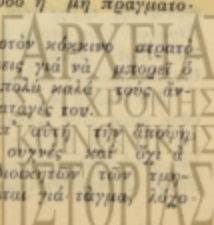 ὁδο ἢ μὴ πραγματο-
στὸν κόκκινο στρατό-
εις γιὰ νὰ μπορεῖ ὁ
πολὺ καλὰ τοὺς ἀν-
αταγές του.
π' αὐτὴ τὴν ἄποψη
συχνές καὶ ὄχι ἀ
διοικητῶν τῶν τμη-
ται γιὰ τάγμα, λόχο-
ΑΡΧΕΙΑ
ΧΡΟΝΗΣ
ΚΟΙΝΩΝΙΚΗΣ
ΙΣΤΟΡΙΑΣ